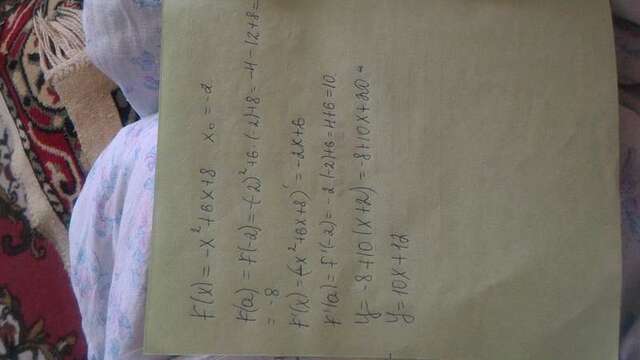 F(x) = -x² + 6x + 8   x₀ = -2
F(a) = F(-2) = -(-2)² + 6·(-2) + 8 = -4 - 12 + 8 =
= -8
F'(x) = (-x² + 6x + 8)' = -2x + 6
F'(a) = f'(-2) = -2(-2) + 6 = 4 + 6 = 10
y = -8 + 10(x + 2) = -8 + 10x + 20 =
y = 10x + 12